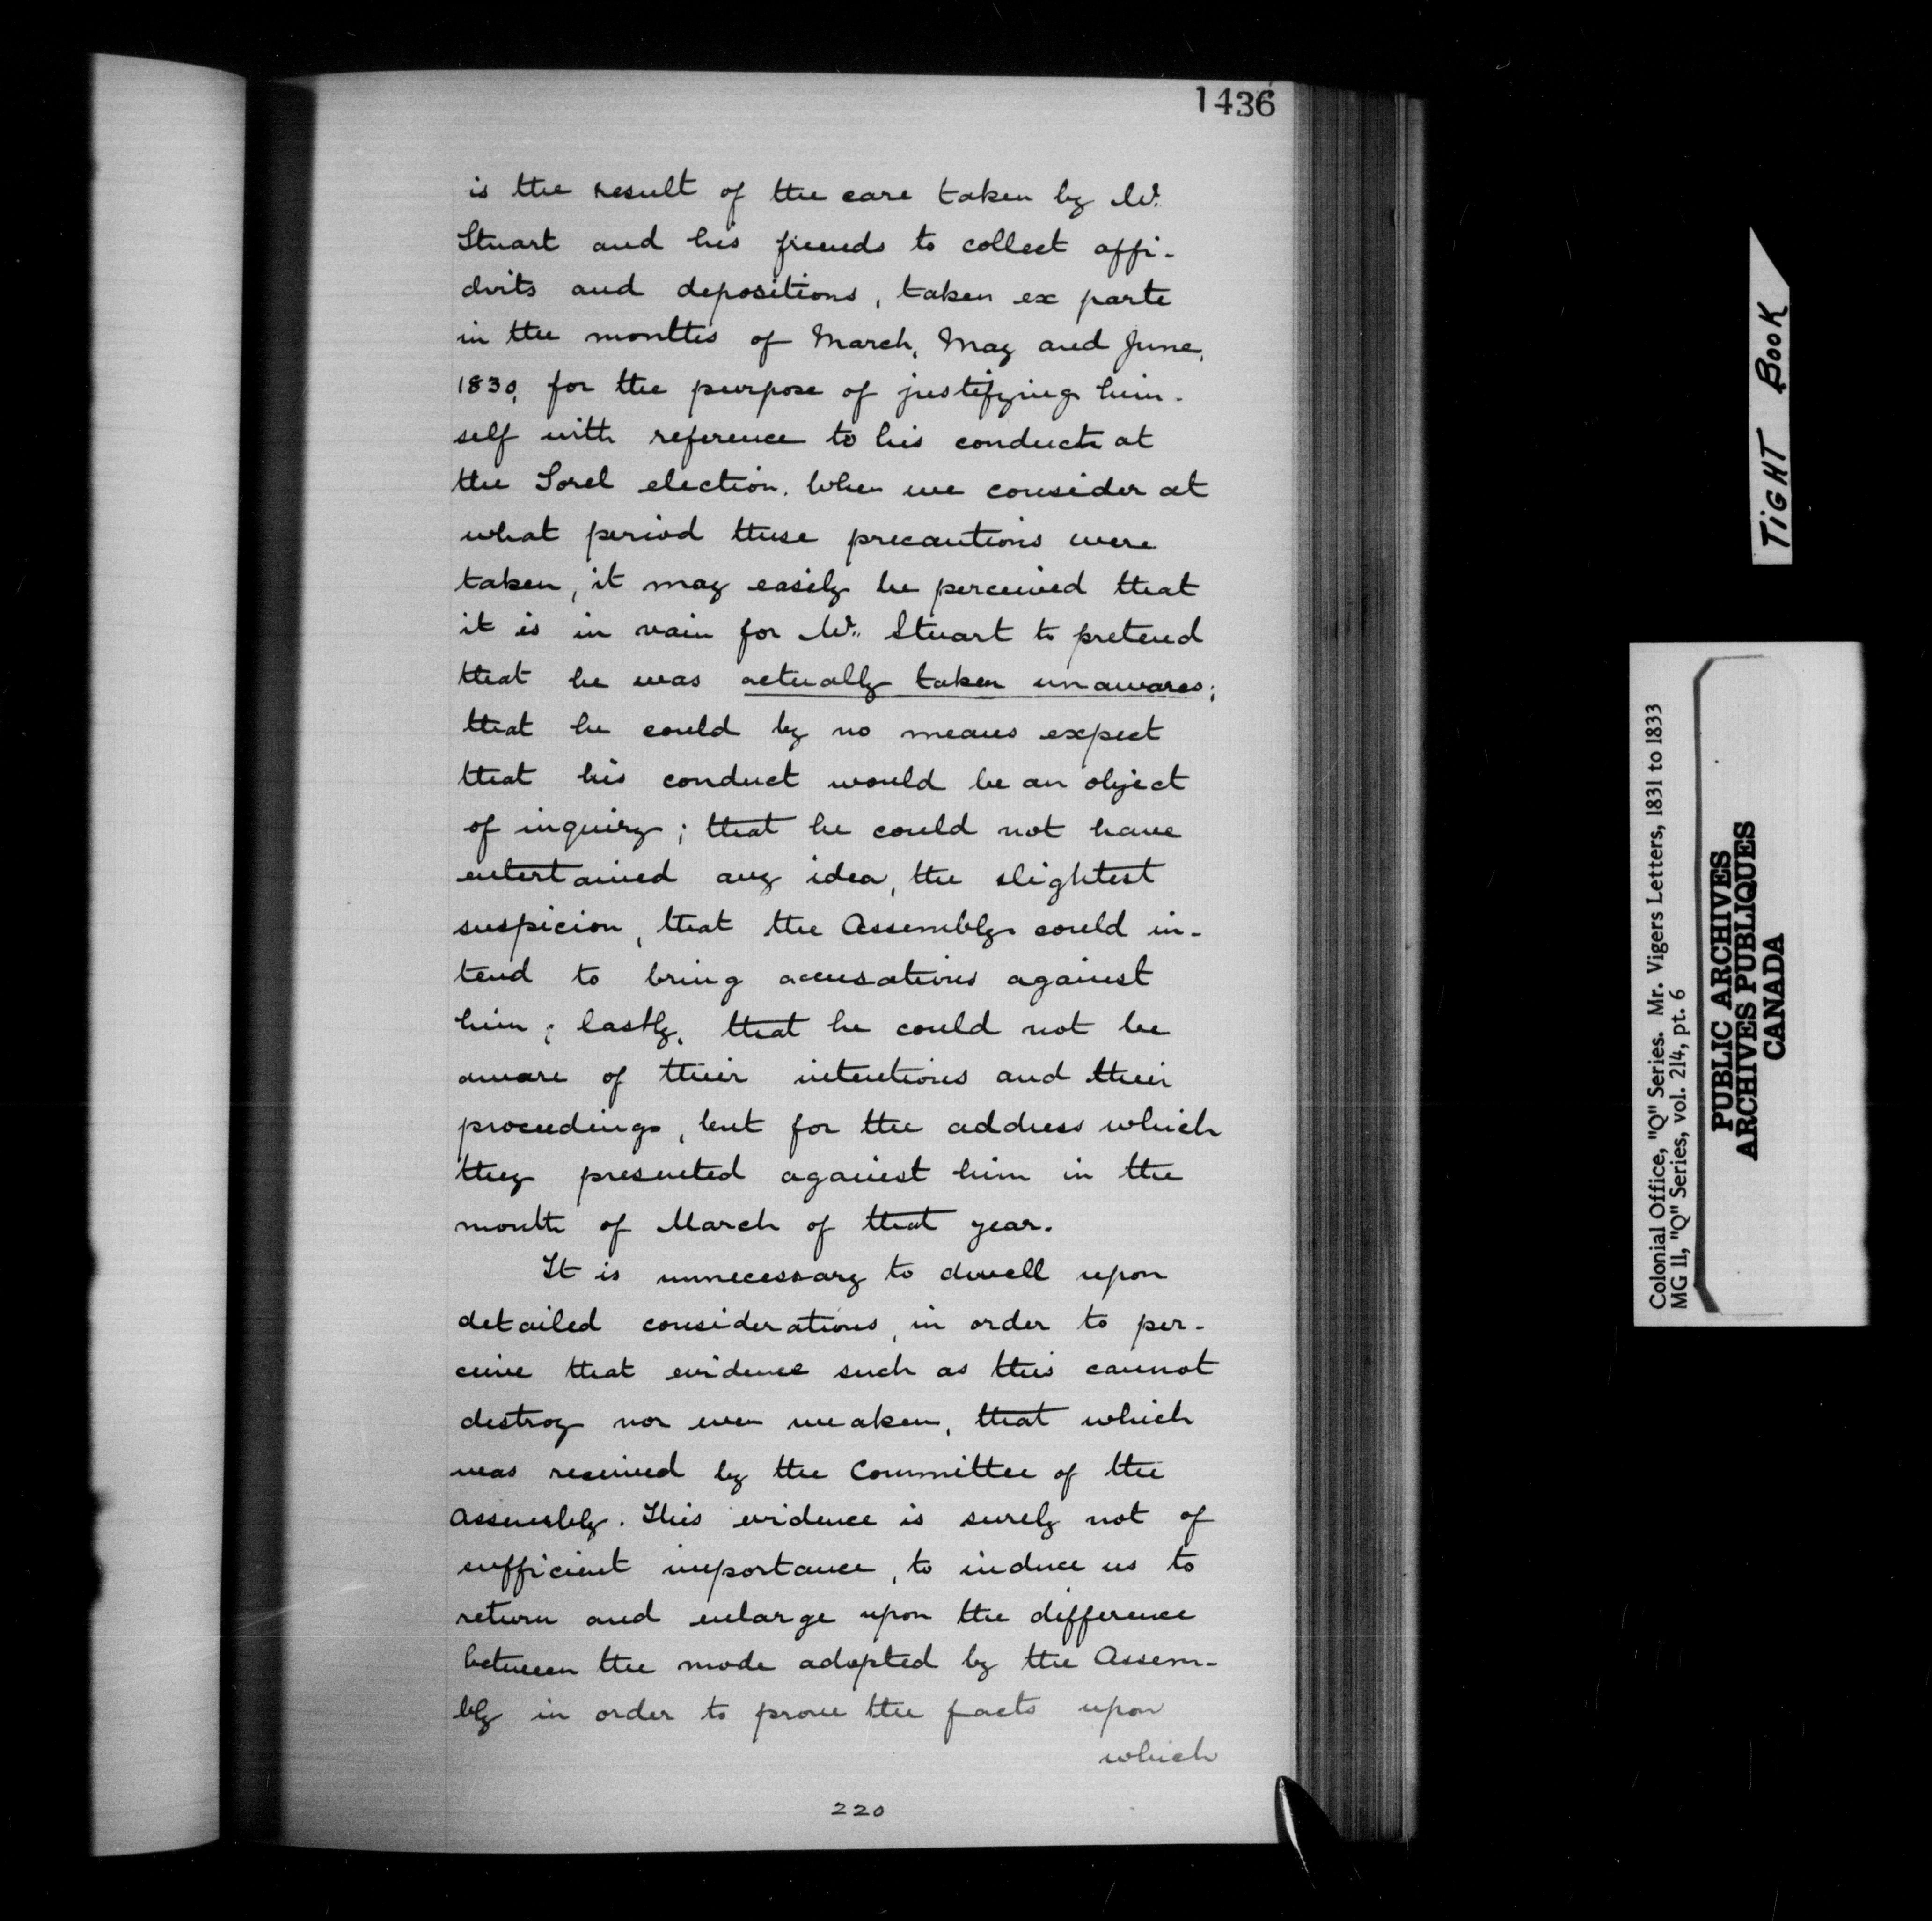 1436
is the result of the care taken by Mr.
Stuart and his friends to collect affi-
dvits and depositions, taken ex parte
in the months of March, May and June,
1830, for the purpose of justifying him-
self with reference to his conduct at
the Sorel election. When we consider at
what period these precautions were
taken, it may easily be perceived that
it is in vain for Mr. Stuart to pretend
that he was actually taken unawares;
that he could by no means expect
that his conduct would be an object
of inquiry; that he could not have
entertained any idea, the slightest
suspicion, that the Assembly could in-
tend to bring accusations against
him; lastly, that he could not be
aware of their intentions and their
proceedings, but for the address which
they presented against him in the
month of March of that year.
It is unnecessary to dwell upon
detailed considerations, in order to per-
ceive that evidence such as this cannot
destroy nor even weaken, that which
was received by the Committee of the
Assembly. This evidence is surely not of
sufficient importance, to induce us to
return and enlarge upon the difference
between the mode adopted by the Assem-
bly in order to prove the facts upon
which
220
TIGHT BOOK
Colonial Office, "Q" Series. Mr. Vigers Letters, 1831 to 1833
MG 11, "Q" Series, vol. 214, pt. 6
PUBLIC ARCHIVES
ARCHIVES PUBLIQUES
CANADA